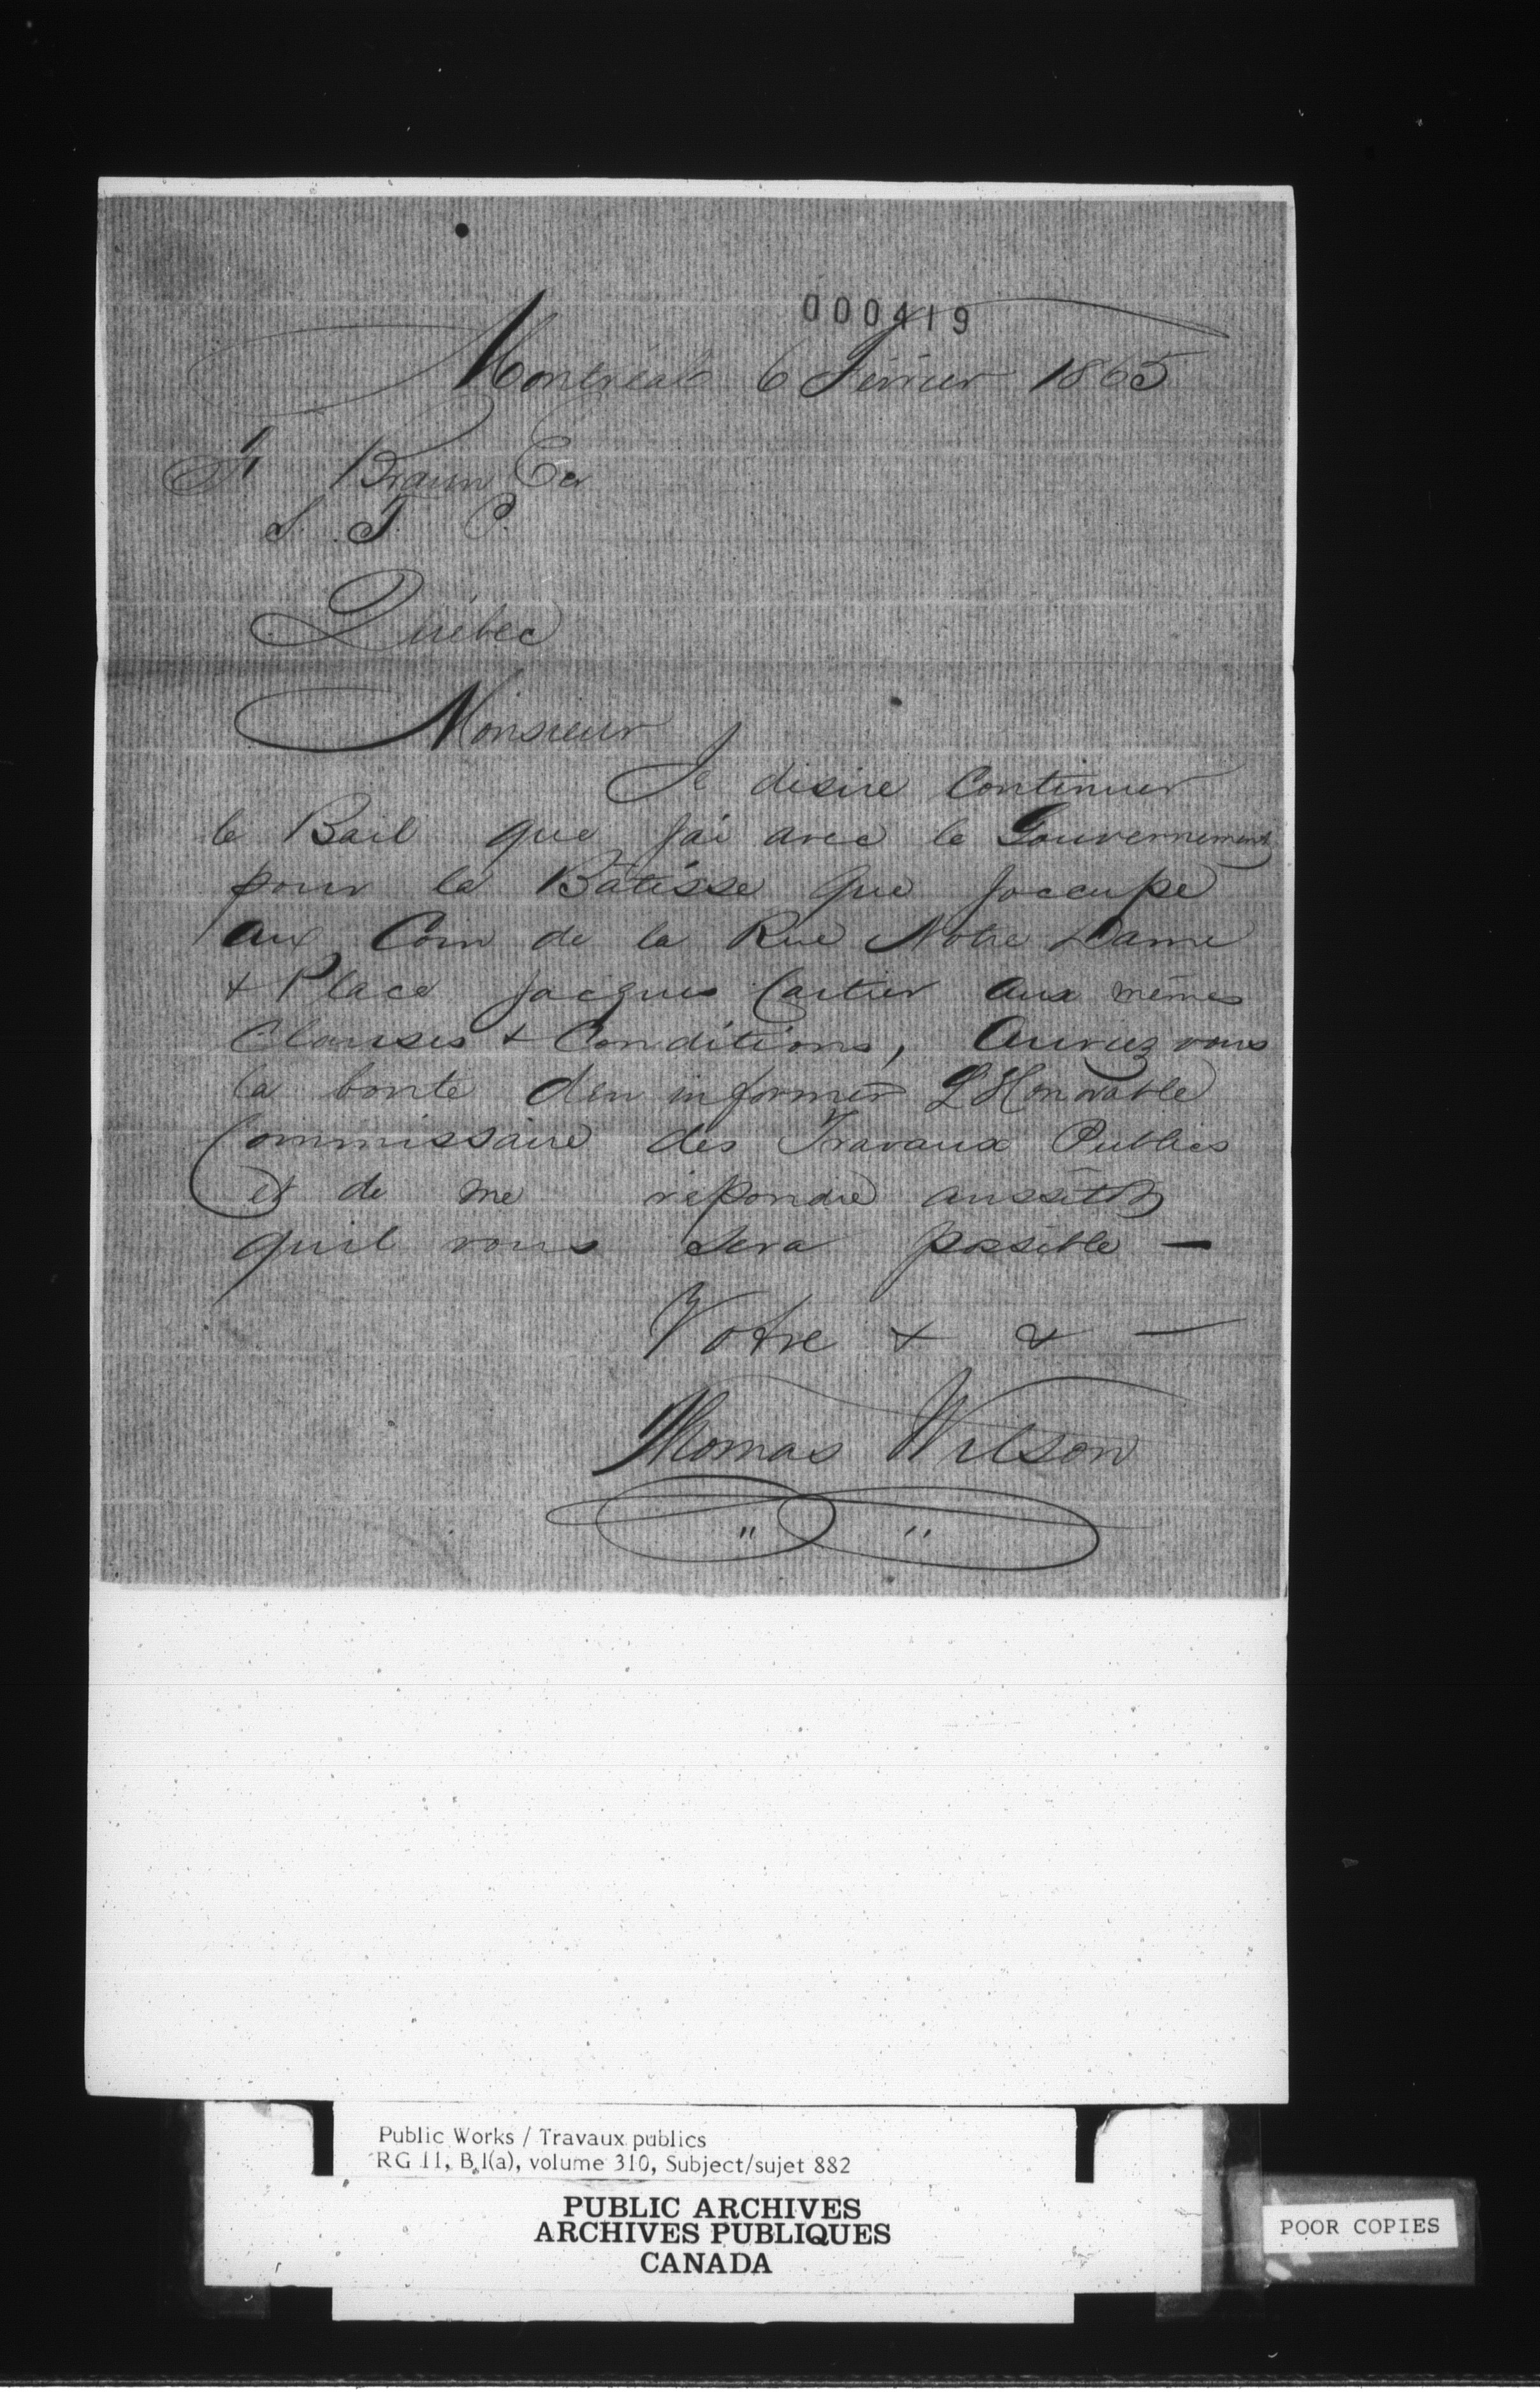 000419
Montréal 6 Février 1865
F. Braun Ecr
S. T. P.
Québec
Monsieur
Je desire Continuer
le Bail que j'ai avec le Gouvernement
pour la Bâtisse que joccupe
aux Coin de la Rue Notre Dame
& Place Jacques Cartier aux mêmes
Clauses & Conditions, Auriez vous
la bonté d'en informer L'Honorable
Commissaire des Travaux Publics
et de me répondre aussitôt
quil vous sera possible —
Votre & & —
Thomas Wilson
" "
Public Works / Travaux publics
RG 11, B 1(a), volume 310, Subject/sujet 882
PUBLIC ARCHIVES
ARCHIVES PUBLIQUES
CANADA
POOR COPIES